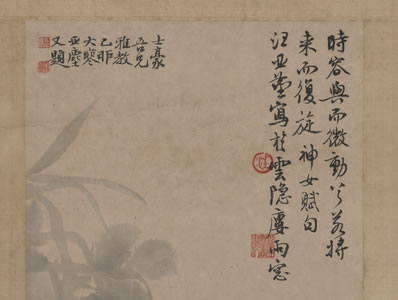 時容與而微動兮若將
來而復旋 神女賦句
汪亞塵寫於雲隱廔雨窓
士豪
五兄
雅教
己卯
大寒
亞塵
又題